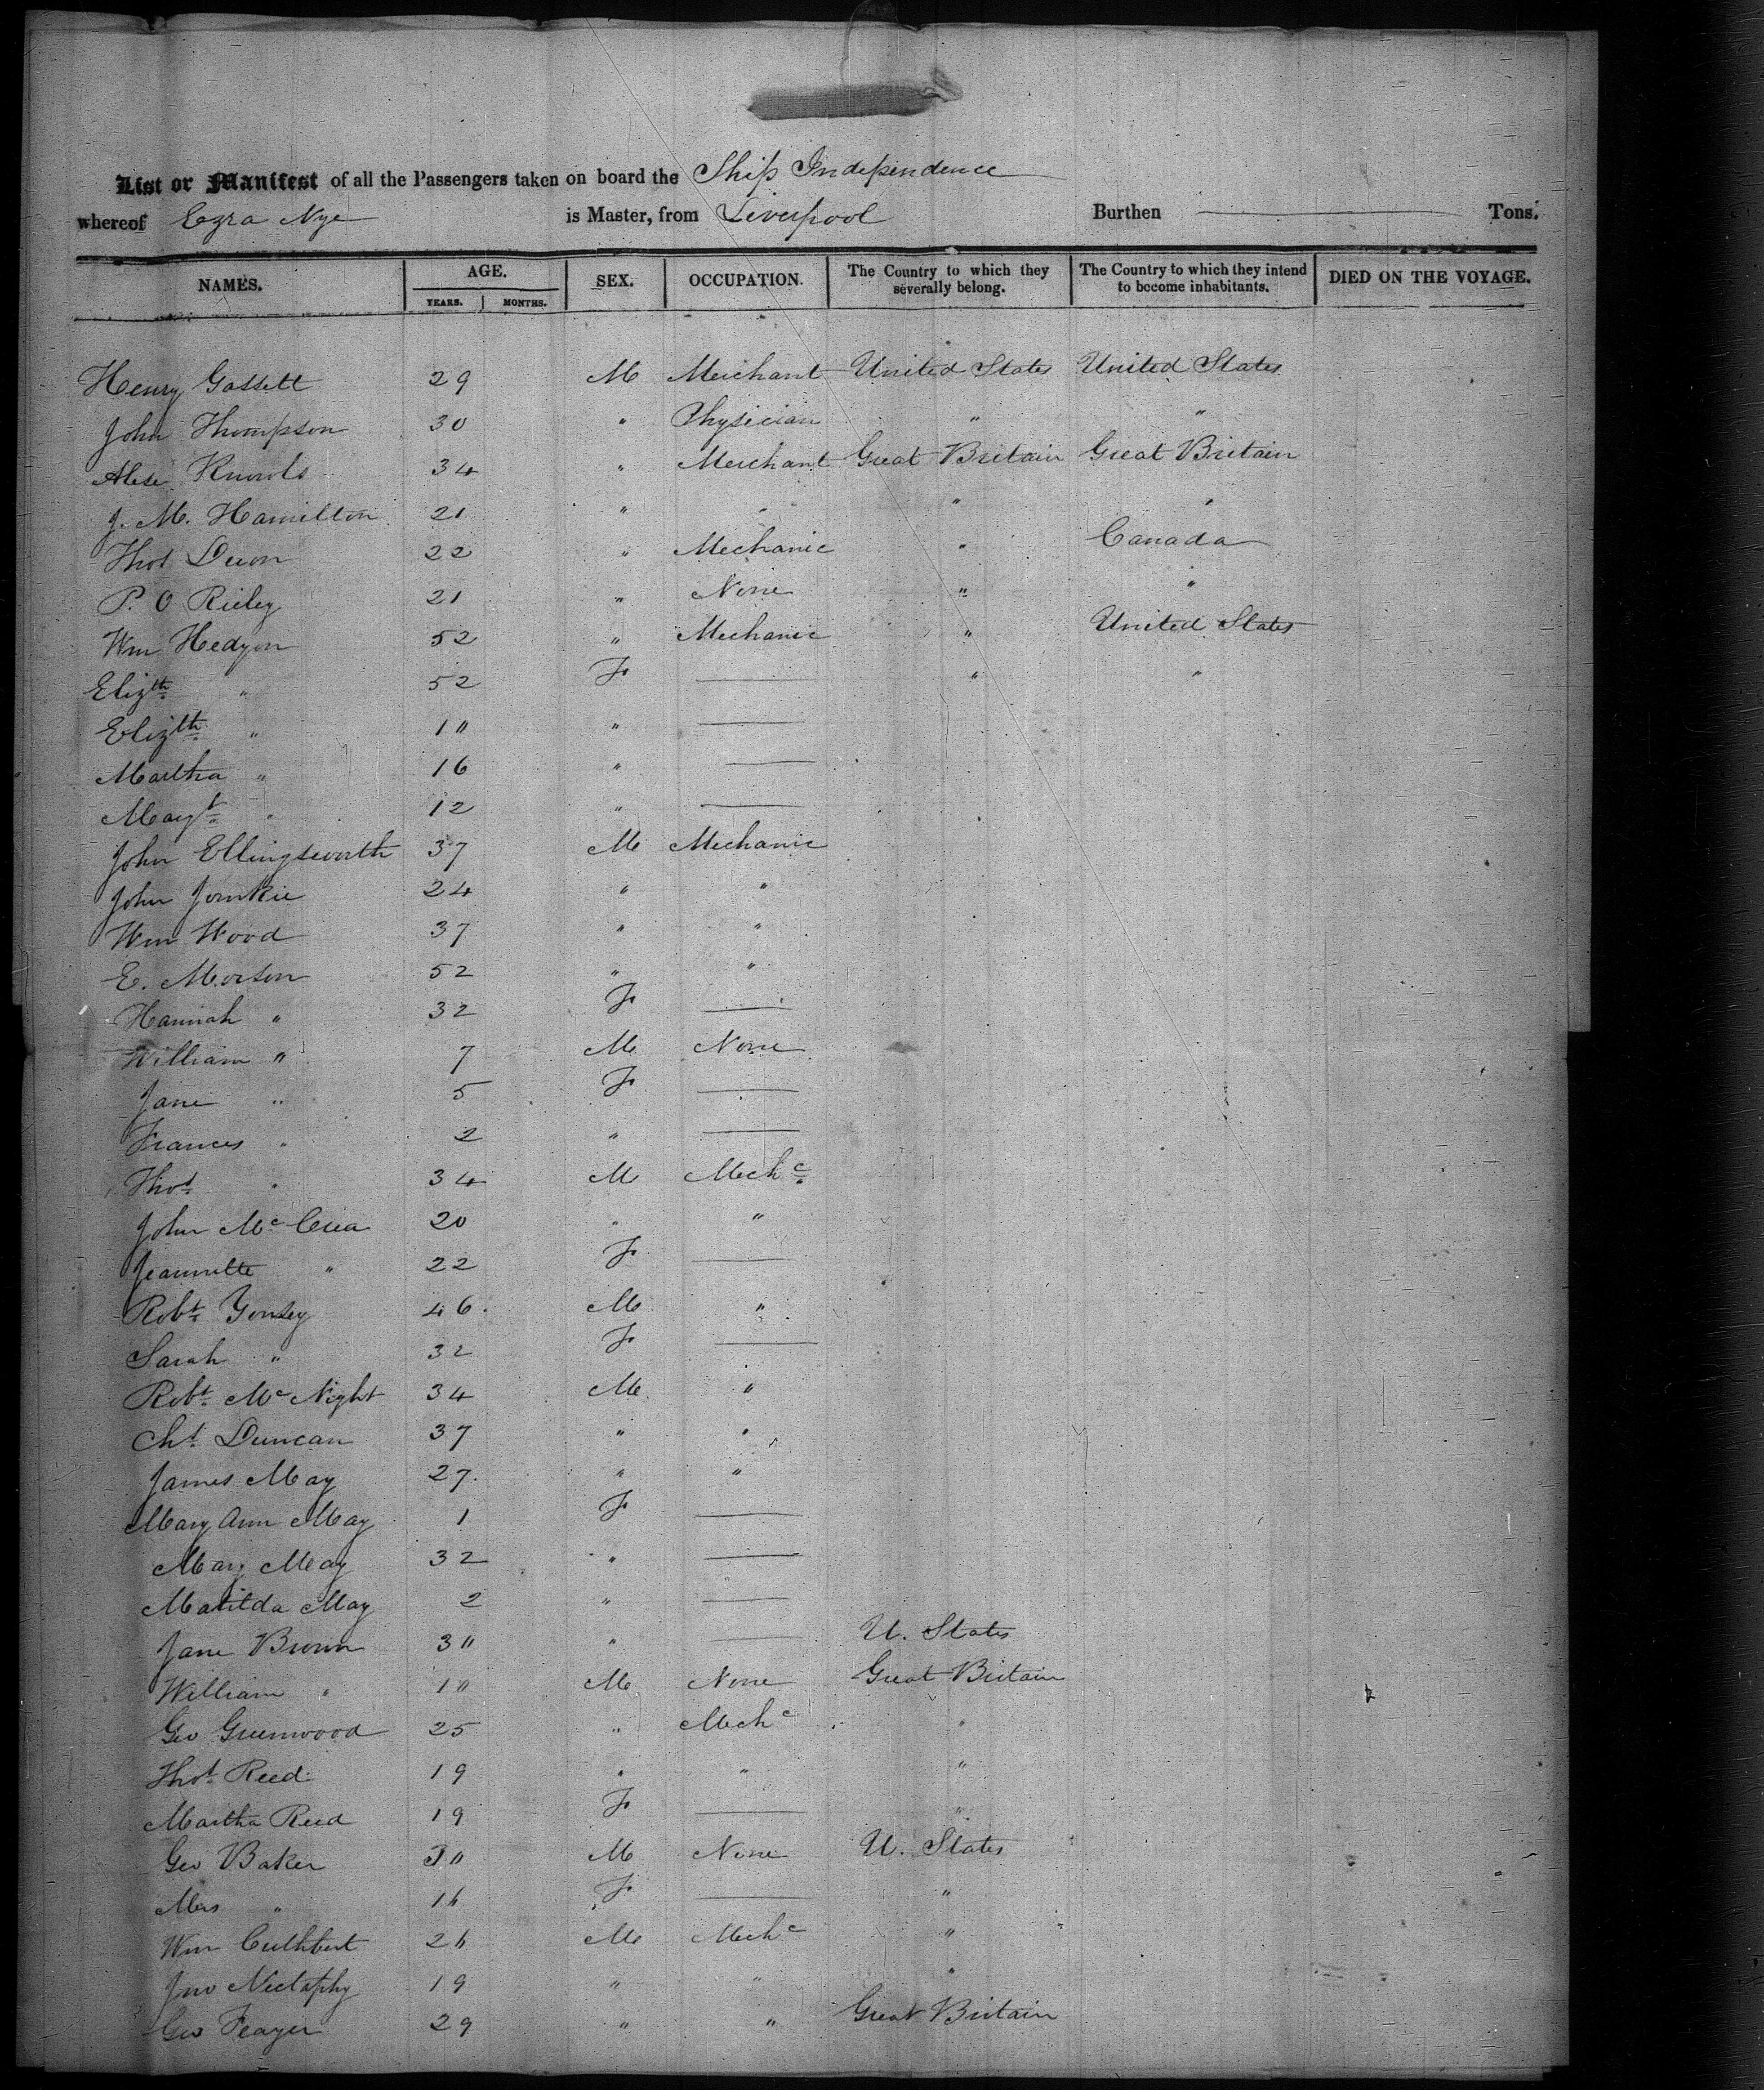 List or Manifest of all the Passengers taken on board the Ship Independence
whereof Ezra Nye is Master, from Liverpool Burthen ——— Tons.
NAMES. AGE. SEX. OCCUPATION. The Country to which they severally belong. The Country to which they intend to become inhabitants. DIED ON THE VOYAGE.
YEARS. MONTHS.
Henry Gassett 29 M Merchant United States United States
John Thompson 30 " Physician " "
Knowls 34 " Merchant Great Britain Great Britain
J. M. Hamilton 21 " " " "
Thos 22 " Mechanic " Canada
P. O Rieley 21 " None " "
Wm Hedgon 52 " Mechanic " United States
Elizth " 52 F — " "
Elizth " 1" " —
Martha " 16 " —
Magt " 12 " —
John Ellingsworth 37 M Mechanic
John 24 " "
Wm Wood 37 " "
E. Morson 52 " "
Hannah " 32 F —
William " 7 M None
Jane " 5 F —
Frances " 2 " —
Thos " 34 M Mechc
John Mc Crea 20 " "
Jeannette " 22 F —
Robt Yonsey 46. M "
Sarah " 32 F —
Robt Mc Night 34 M "
Chs Duncan 37 " "
James May 27. " "
Mary Ann May 1 F —
Mary May 32 " —
Matilda May 2 " —
Jane Brown 3" " — U. States
William " 1" M None Great Britain
Geo Greenwood 25 " Mechc "
Thos Reed 19 " " "
Martha Reed 19 F — "
Geo Baker 3" M None U. States
Mrs " 16 F — "
Wm Cuthbert 26 M Mechc "
Jno 19 " " "
Geo Feayer 29 " " Great Britain